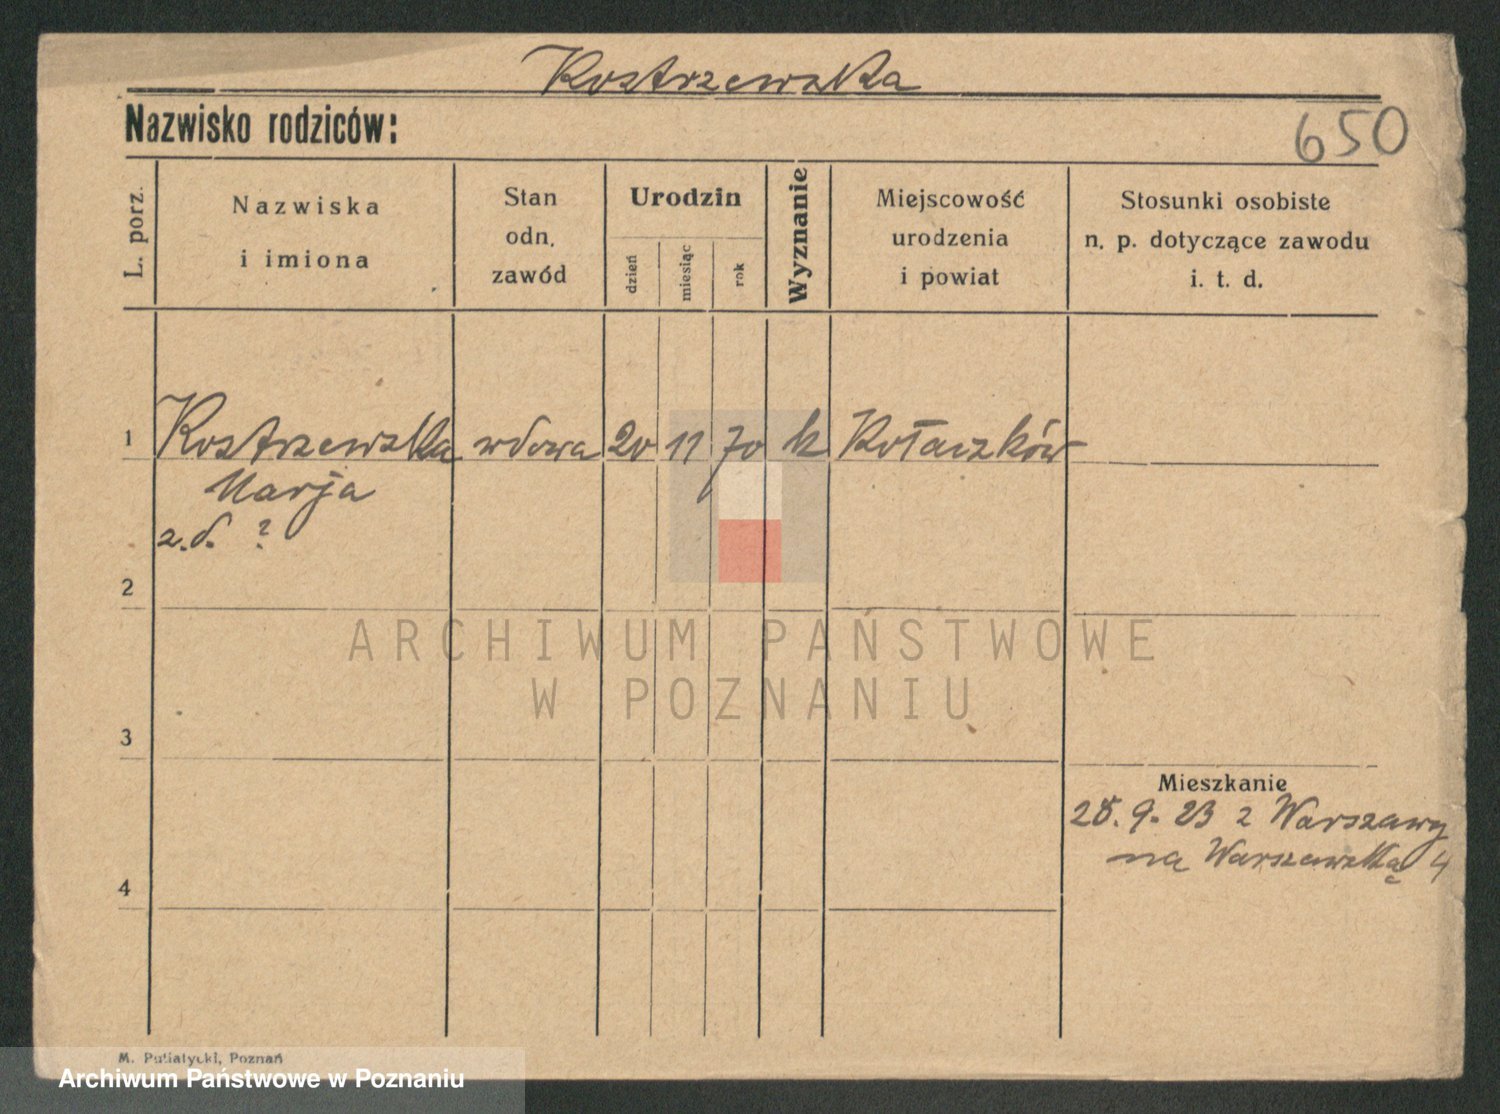 Kostrzewska
Nazwisko rodziców:
650
L. porz.
Nazwiska
i imiona
Stan
odn.
zawód
Urodzin
dzień
miesiąc
rok
Wyznanie
Miejscowość
urodzenia
i powiat
Stosunki osobiste
n. p. dotyczące zawodu
i. t. d.
1 Kostrzewska wdowa 20 11 70 k Kołaczków
Marja
z.d. ?
2
ARCHIWUM PAŃSTWOWE
W POZNANIU
3
Mieszkanie
28. 9. 23 z Warszawy
na Warszawską 4
4
M. Putiatycki, Poznań
Archiwum Państwowe w Poznaniu